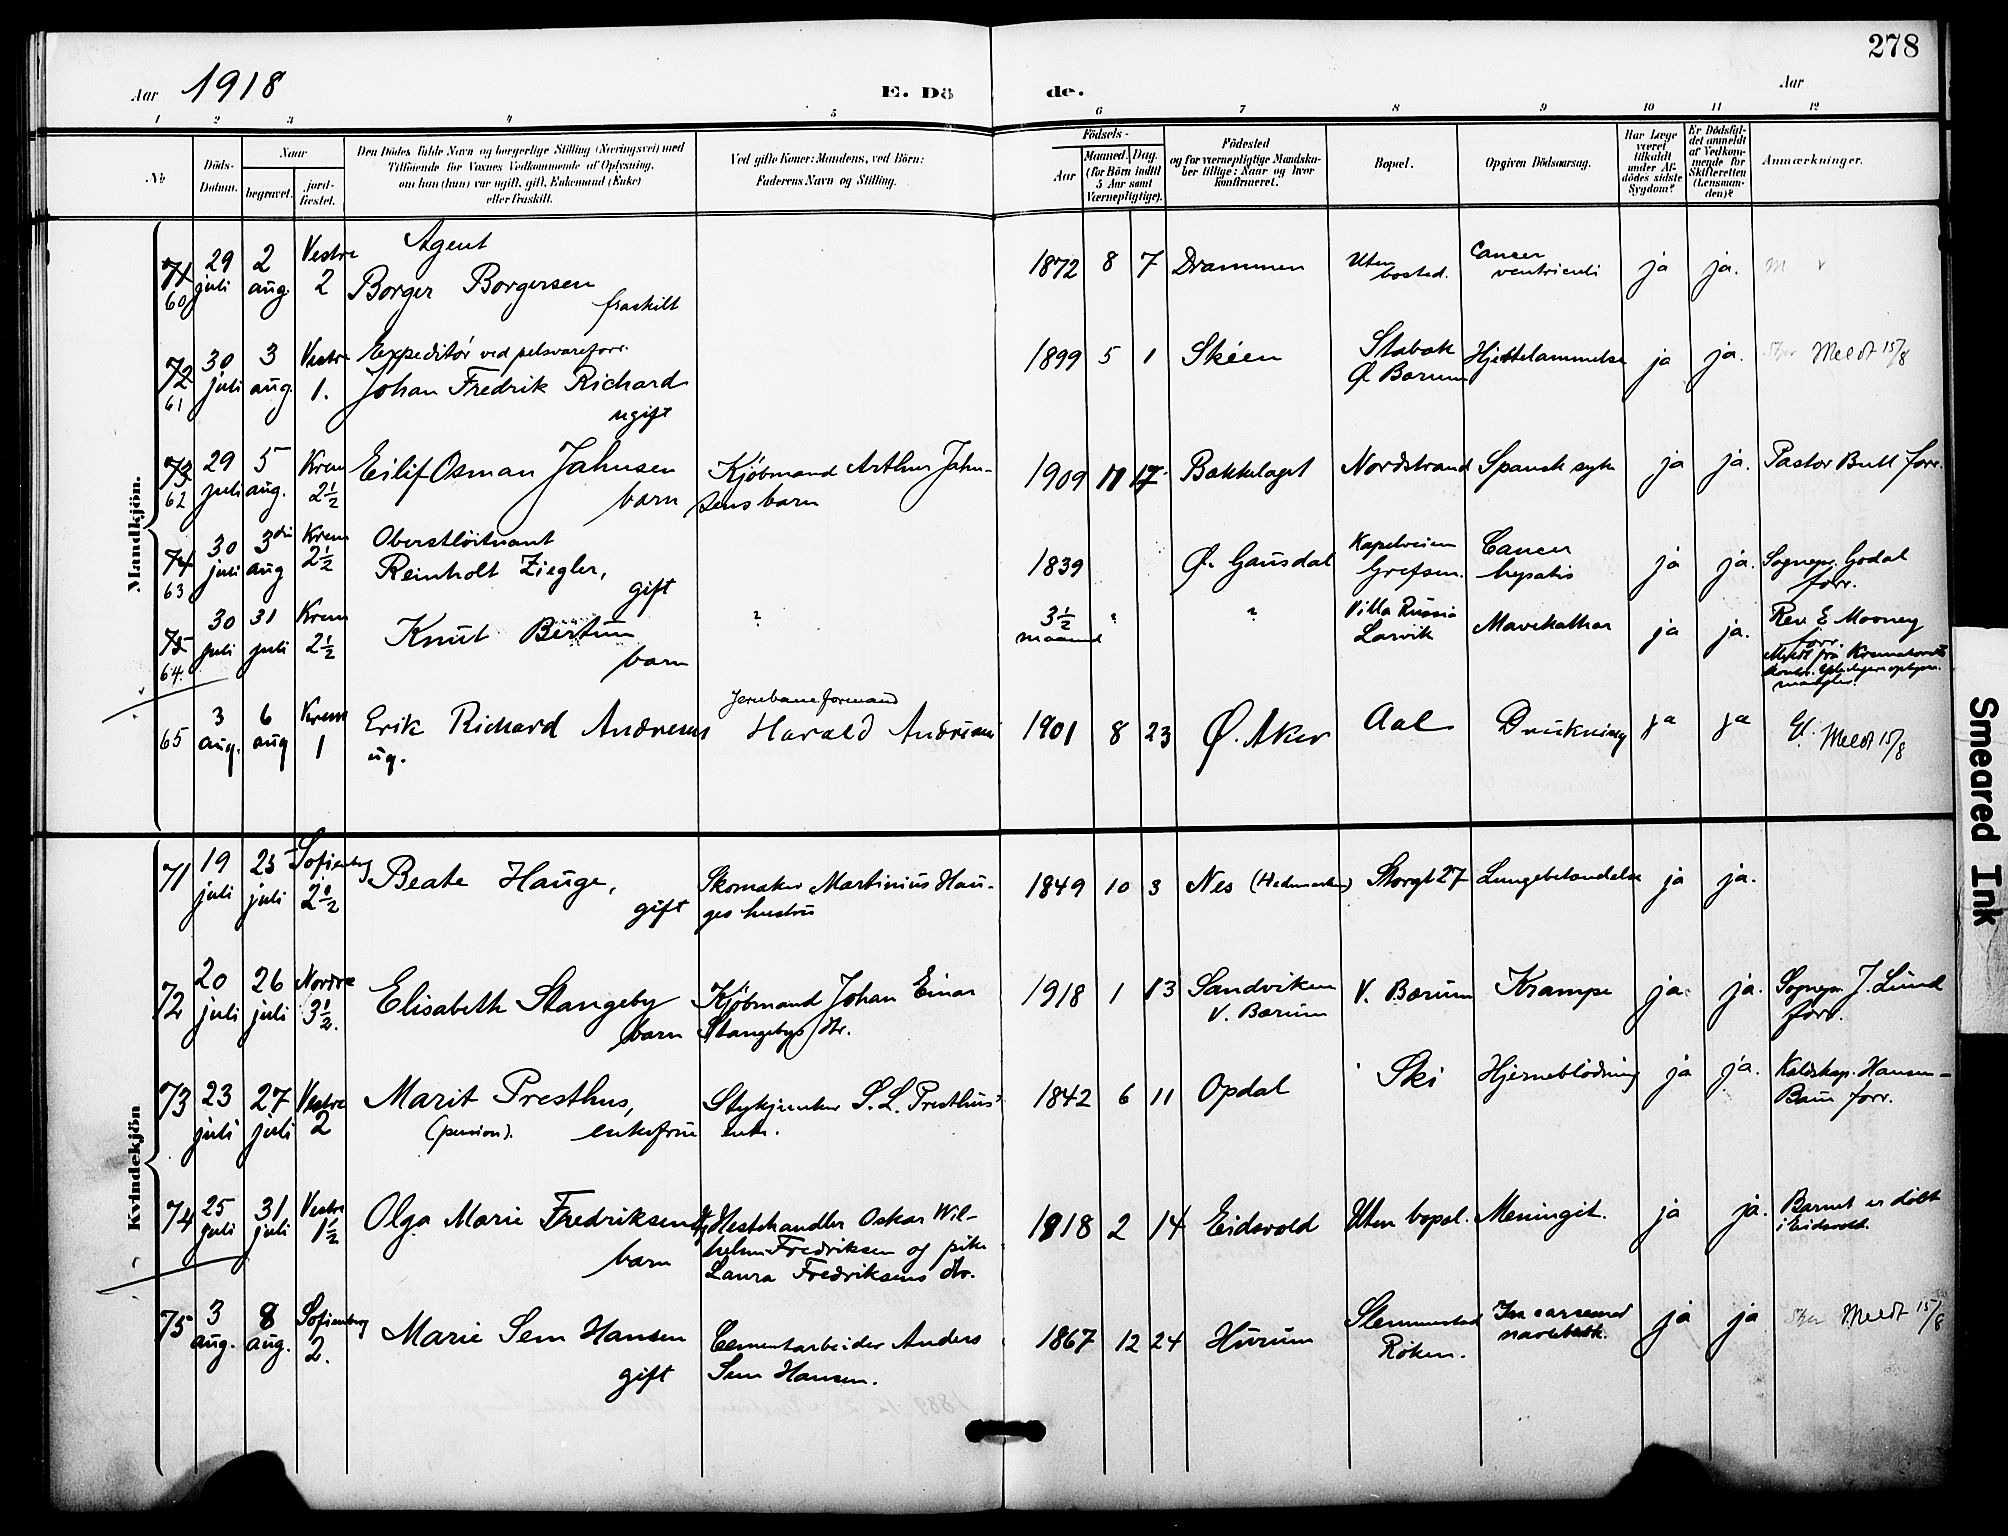 278
Aar 1918 E. Dö de. Aar
1 2 3 4 5 6 7 8 9 10 11 12
Nr.
Döds-
Datum.
Naar
begravet.
jord-
fæstet.
Den Dödes fulde Navn og borgerlige Stilling (Næringsvei) med
Tilföiende for Voxnes Vedkommende af Oplysning,
om han (hun) var ugift, gift, Enkemand (Enke)
eller fraskilt.
Ved gifte Koner: Mandens, ved Börn:
Faderens Navn og Stilling.
Födsels-
Aar
Maaned. Dag.
(for Börn indtil
5 Aar samt
Værnepligtige).
Födested
og for værnepligtige Mandska-
ber tillige: Naar og hvor
konfirmeret.
Bopæl.
Opgiven Dödsaarsag.
Har Læge
været
tilkaldt
under Af-
dödes sidste
Sygdom?
Er Dödsfal-
det anmeldt
af Vedkom-
mende for
Skifteretten
(Lensman-
den)?
Anmærkninger.
Mandkjön.
71 60 29 juli 2 aug. Vestre 2
Agent
Borger Borgersen
fraskilt
1872 8 7 Drammen Uten bosted. Cancer ventriculi ja ja.
72 61 30 juli 3 aug. Vestre 1.
Expeditör ved pelsvareforr.
Johan Fredrik Richard
ugift
1899 5 1 Skien Stabæk Ø Bærum Hjertelammelse ja ja. Meldt 15/8
73 62 29 juli 5 aug. Krem 2½
Eilif Osman Jahnsen
barn
Kjöbmand Arthur Jahn-
sens barn
1909 11 17 Bækkelaget Nordstrand Spansk syke ja ja. Pastor Bull forr.
74 63 30 juli 3die aug Krem 2½
Oberstlöitnant
Reinholt Ziegler,
gift
1839 Ø. Gausdal Kapelveien Grefsen. Cancer hepatis ja ja. Sognepr. Godal forr.
75 64. 30 juli 31 juli Krem 2½
Knut
barn
? 3½ maaned ? ? Villa Russia Larvik Mavekathar ja ja. Rev. E Mooney
forr.
65 3 aug. 6 aug Krem 1
Erik Richard Andresen
ug.
Jernbaneformand
Harald Andresen
1901 8 23 Ø. Aker Aal Drukning ja ja Meldt 15/8
Kvindekjön
71 19 juli 25 juli Sofienberg 2½
Beate Hauge,
gift
Skomaker Martinius Hau-
ges hustru
1849 10 3 Nes (Hedmarken) Storgt 27 Lungebetændelse ja ja.
72 20 juli 26 juli Nordre 3½.
Elisabeth Stangeby
barn
Kjöbmand Johan Einar
Stangebys dtr.
1918 1 13 Sandviken V. Bærum V. Bærum Krampe ja ja. Sognepr. J. Lund
forr.
73 23 juli 27 juli Vestre 2
Marit Presthus,
(pension). enkefrue
Stykjunker S. L. Presthus'
enke.
1842 6 11 Opdal Ski Hjerneblödning ja ja. Kaldskap. Hansen-
Bauu forr.
74 25 juli 31 juli Vestre 1½
Olga Marie Fredriksen
barn
Hestehandler Oskar Wil-
helm Fredriksen og pike
Laura Fredriksens dtr.
1918 2 14 Eidsvold Uten bopæl. Meningit. ja ja. Barnet er döbt
i Eidsvold.
75 3 aug. 8 aug. Sofienberg 2.
Marie Sem Hansen
gift
Cementarbeider Anders
Sem Hansen.
1867 12 24 Hurum Slemmestad Röken. Incarcerered navlebrok. ja ja Meldt 15/8
Smeared Ink